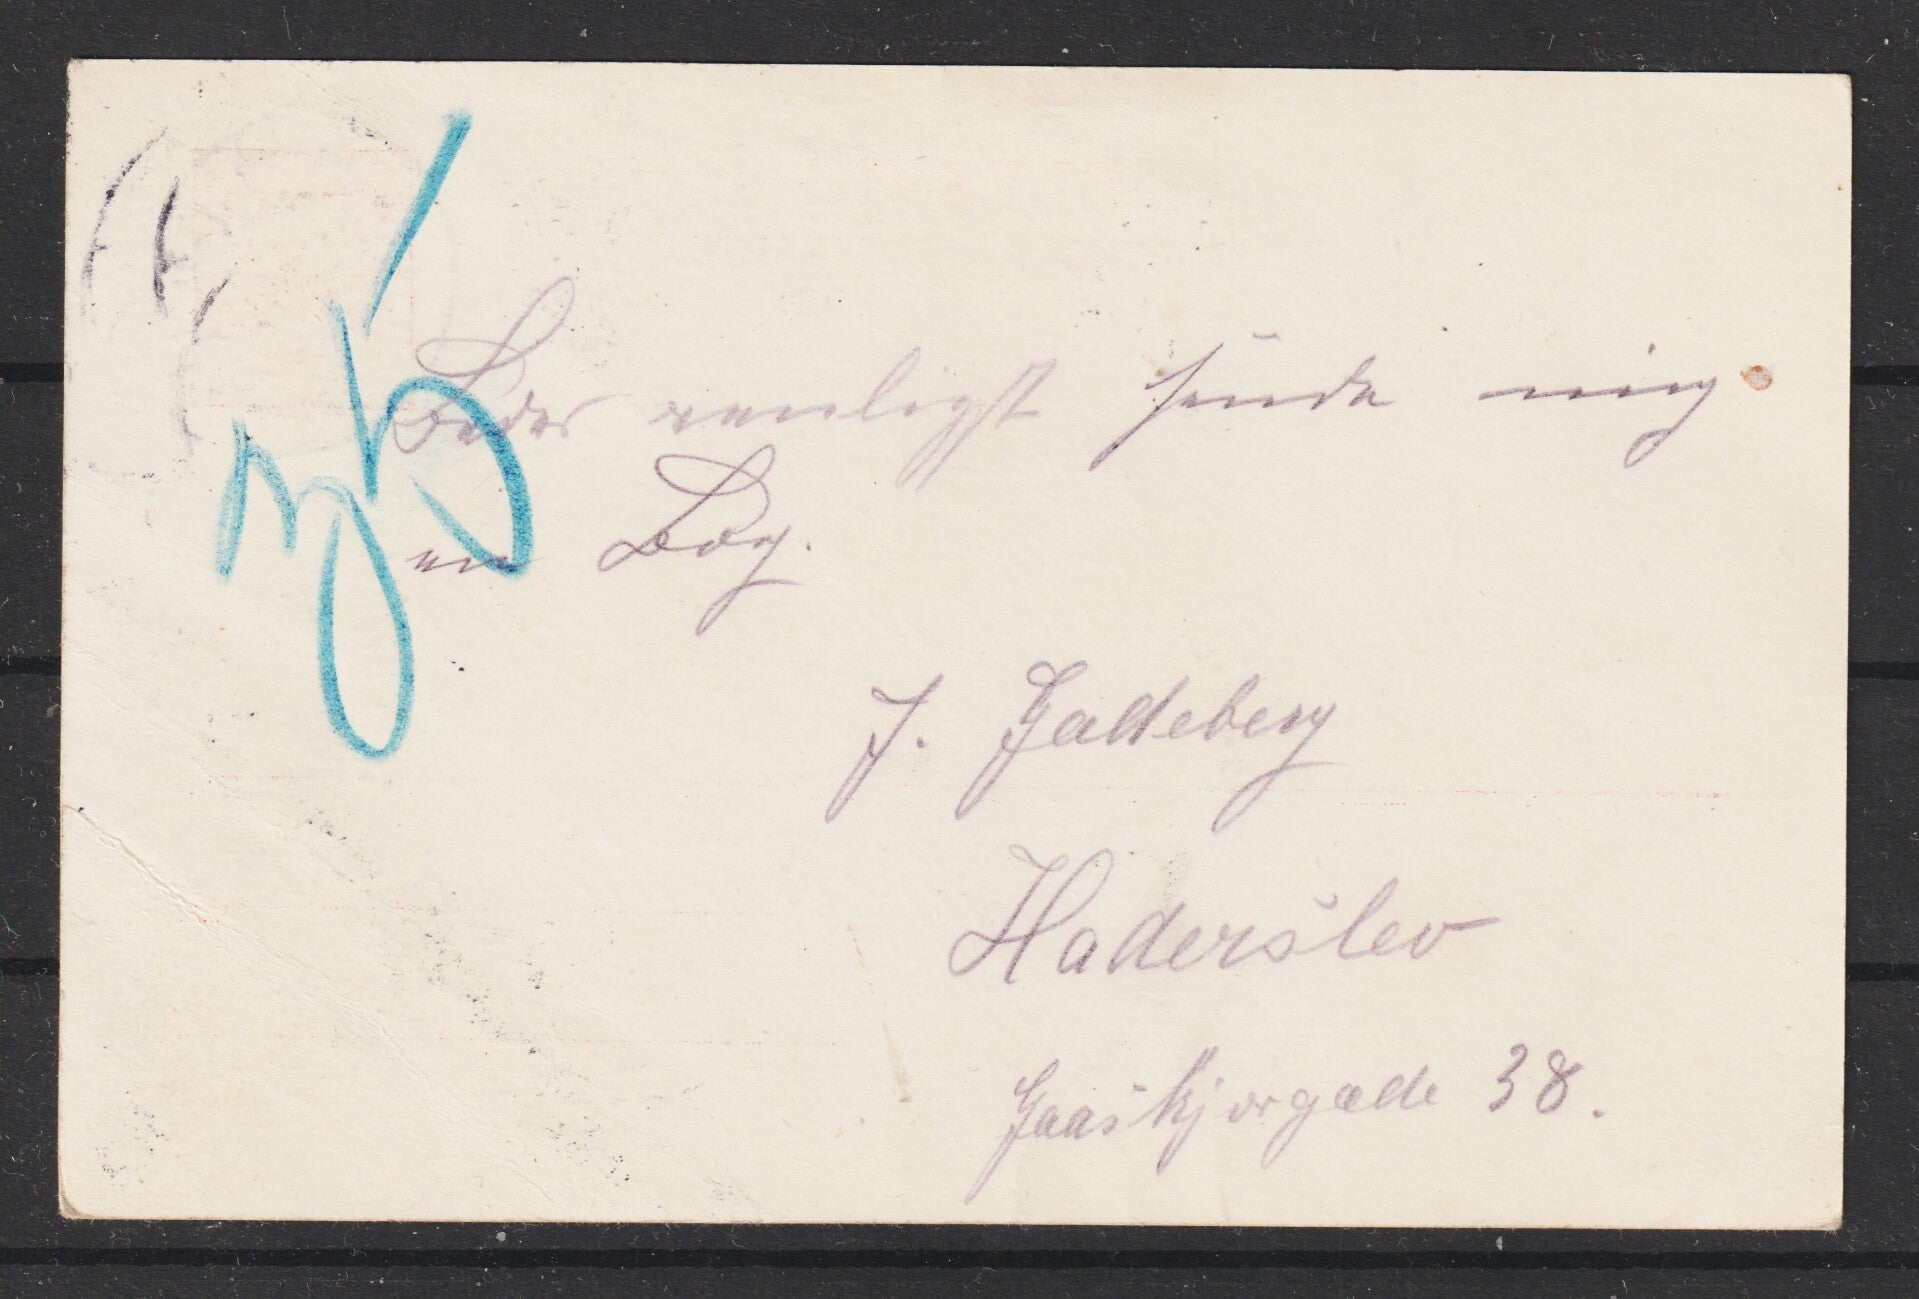 Bedes venligst sende mig
en Bog.
J. Gadeberg
Haderslev
Gaaskjærgade 38.